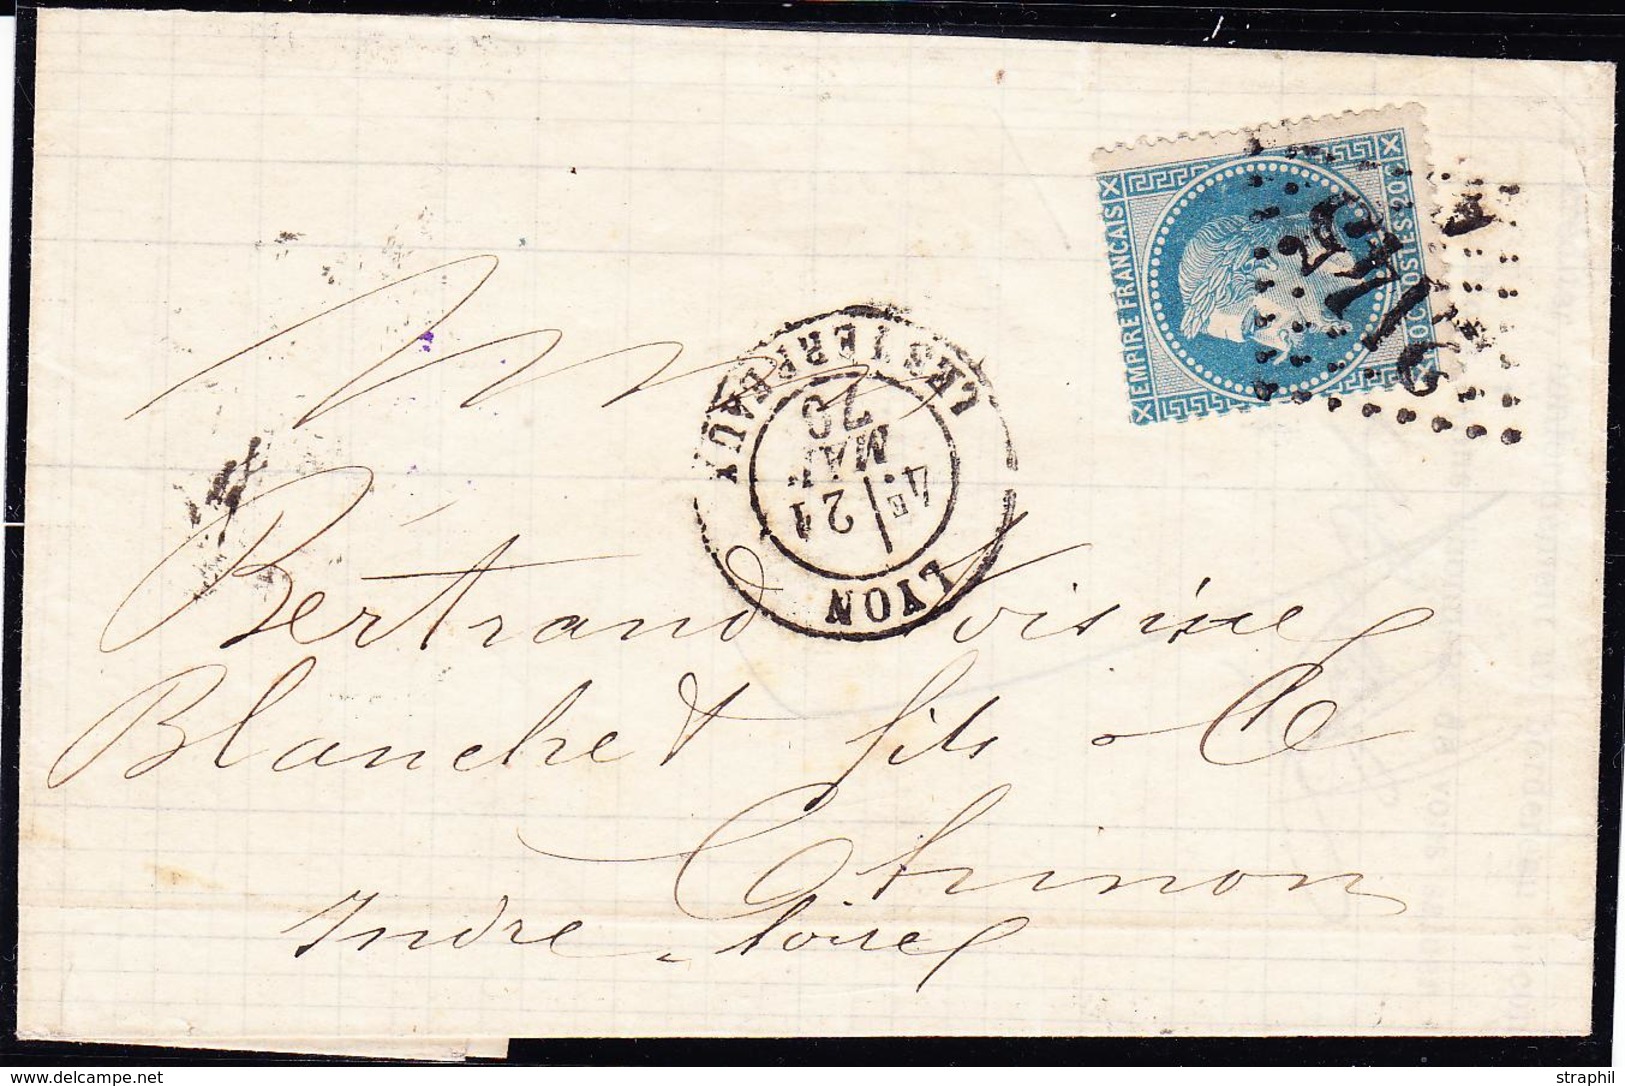 EMPIRE FRANÇAIS
20C POSTES 20C
LYON
LES TERREAUX
4E
21
MAI
70
Mrs
Bertrand Voisine
Blanchet fils & Cie
Chinon
Indre & Loire
www.delcampe.net
straphil